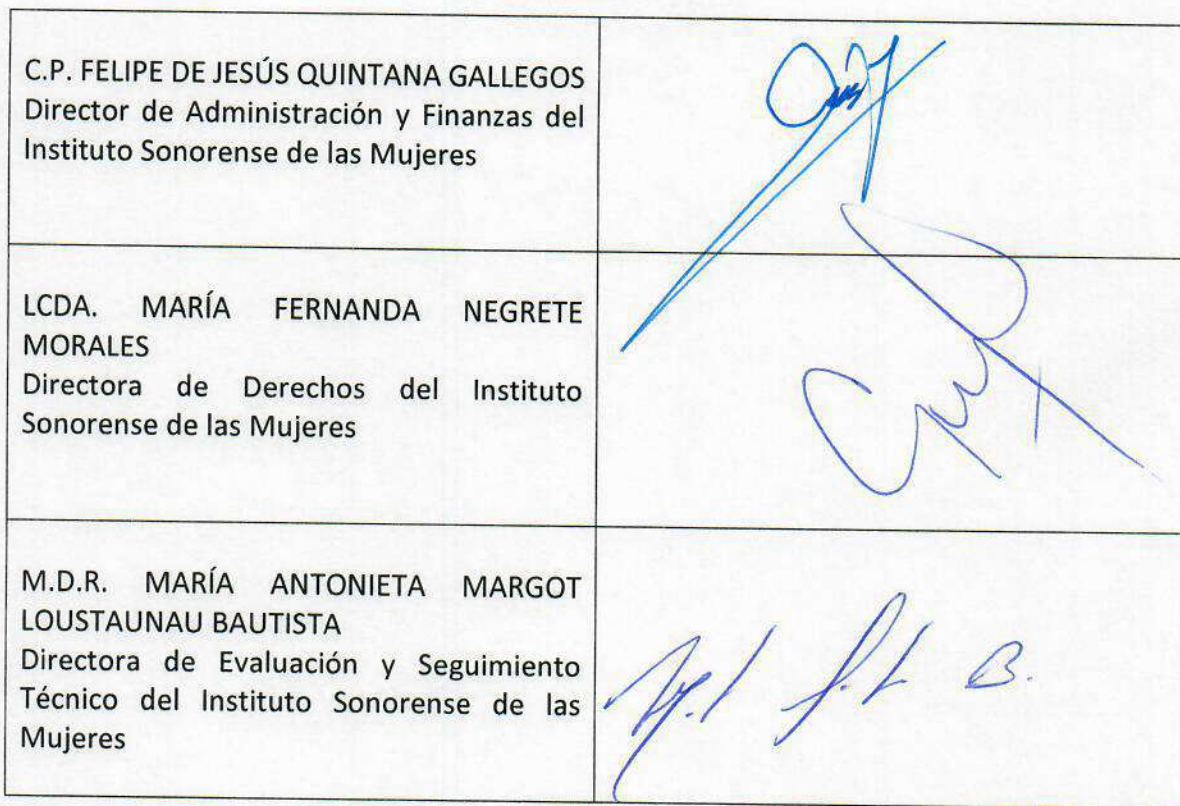 C.P. FELIPE DE JESÚS QUINTANA GALLEGOS
Director de Administración y Finanzas del
Instituto Sonorense de las Mujeres
LCDA. MARÍA FERNANDA NEGRETE
MORALES
Directora de Derechos del Instituto
Sonorense de las Mujeres
M.D.R. MARÍA ANTONIETA MARGOT
LOUSTAUNAU BAUTISTA
Directora de Evaluación y Seguimiento
Técnico del Instituto Sonorense de las
Mujeres